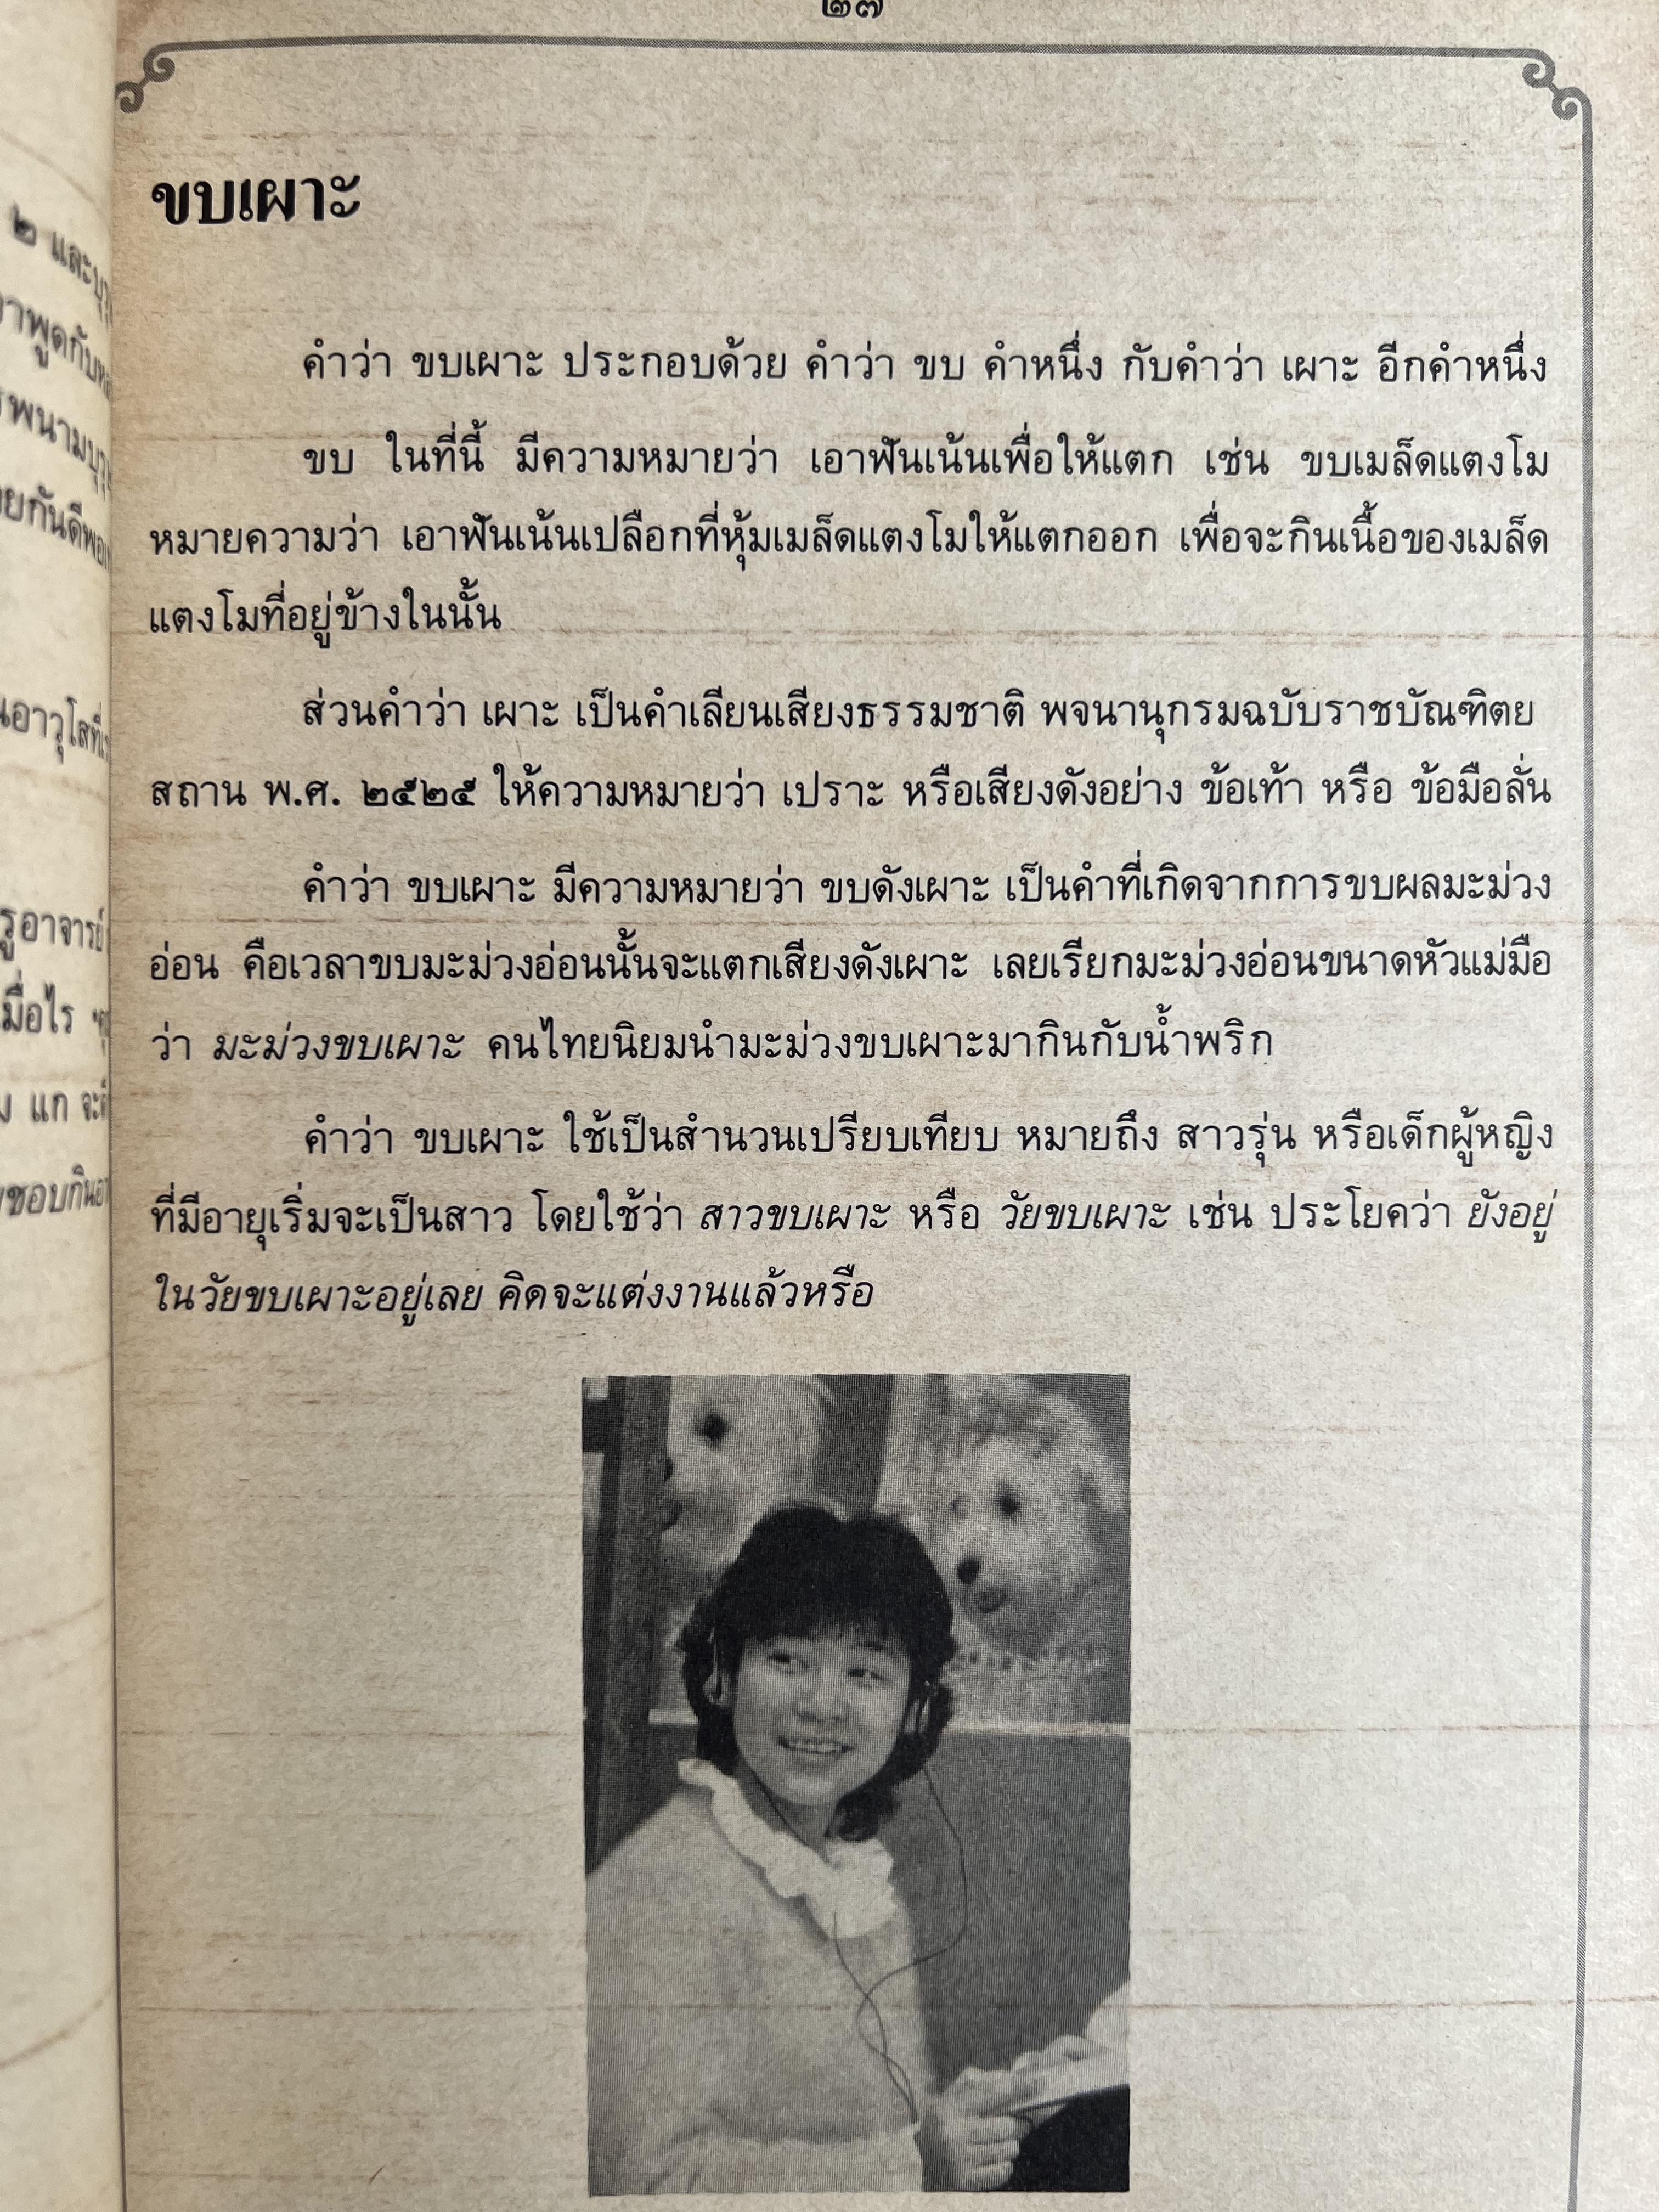 ๒๗
ขบเผาะ
คำว่า ขบเผาะ ประกอบด้วย คำว่า ขบ คำหนึ่ง กับคำว่า เผาะ อีกคำหนึ่ง
ขบ ในที่นี้ มีความหมายว่า เอาฟันเน้นเพื่อให้แตก เช่น ขบเมล็ดแตงโม
หมายความว่า เอาฟันเน้นเปลือกที่หุ้มเมล็ดแตงโมให้แตกออก เพื่อจะกินเนื้อของเมล็ด
แตงโมที่อยู่ข้างในนั้น
ส่วนคำว่า เผาะ เป็นคำเลียนเสียงธรรมชาติ พจนานุกรมฉบับราชบัณฑิตย
สถาน พ.ศ. ๒๕๒๕ ให้ความหมายว่า เปราะ หรือเสียงดังอย่าง ข้อเท้า หรือ ข้อมือลั่น
คำว่า ขบเผาะ มีความหมายว่า ขบดังเผาะ เป็นคำที่เกิดจากการขบผลมะม่วง
อ่อน คือเวลาขบมะม่วงอ่อนนั้นจะแตกเสียงดังเผาะ เลยเรียกมะม่วงอ่อนขนาดหัวแม่มือ
ว่า มะม่วงขบเผาะ คนไทยนิยมนำมะม่วงขบเผาะมากินกับน้ำพริก
คำว่า ขบเผาะ ใช้เป็นสำนวนเปรียบเทียบ หมายถึง สาวรุ่น หรือเด็กผู้หญิง
ที่มีอายุเริ่มจะเป็นสาว โดยใช้ว่า สาวขบเผาะ หรือ วัยขบเผาะ เช่น ประโยคว่า ยังอยู่
ในวัยขบเผาะอยู่เลย คิดจะแต่งงานแล้วหรือ